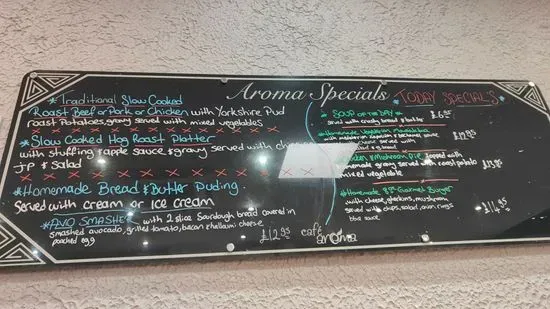 Aroma Specials
*Traditional Slow Cooked
Roast Beef or Pork or Chicken with Yorkshire Pud
roast Potatoes, gravy served with mixed vegetables
*Slow Cooked Hog Roast Platter
with stuffing &apple sauce &gravy served with
JP & Salad
*Homemade Bread & Butter Puding.
Served with cream or ICE cream
*AVO SMASHED with 2 slice Sourdough bread covered in
smashed avocado, grilled tomato, bacon &halloumi cheese
poached egg
£12.95
café
aroma
*TODAY SPECIAL'S
* SOUP OF THE DAY *
served with crusty bread & butter
£6.95
*Homemade Vegetarian Moussaka
£12.95
& Mushroom Pie served with
homemade gravy served with roast potato
mixed vegetable
*Homemade Gourmet Burger
with cheese, gherkins, mushroom
served with chips, salad, onion rings
bbq sauce
£14.95